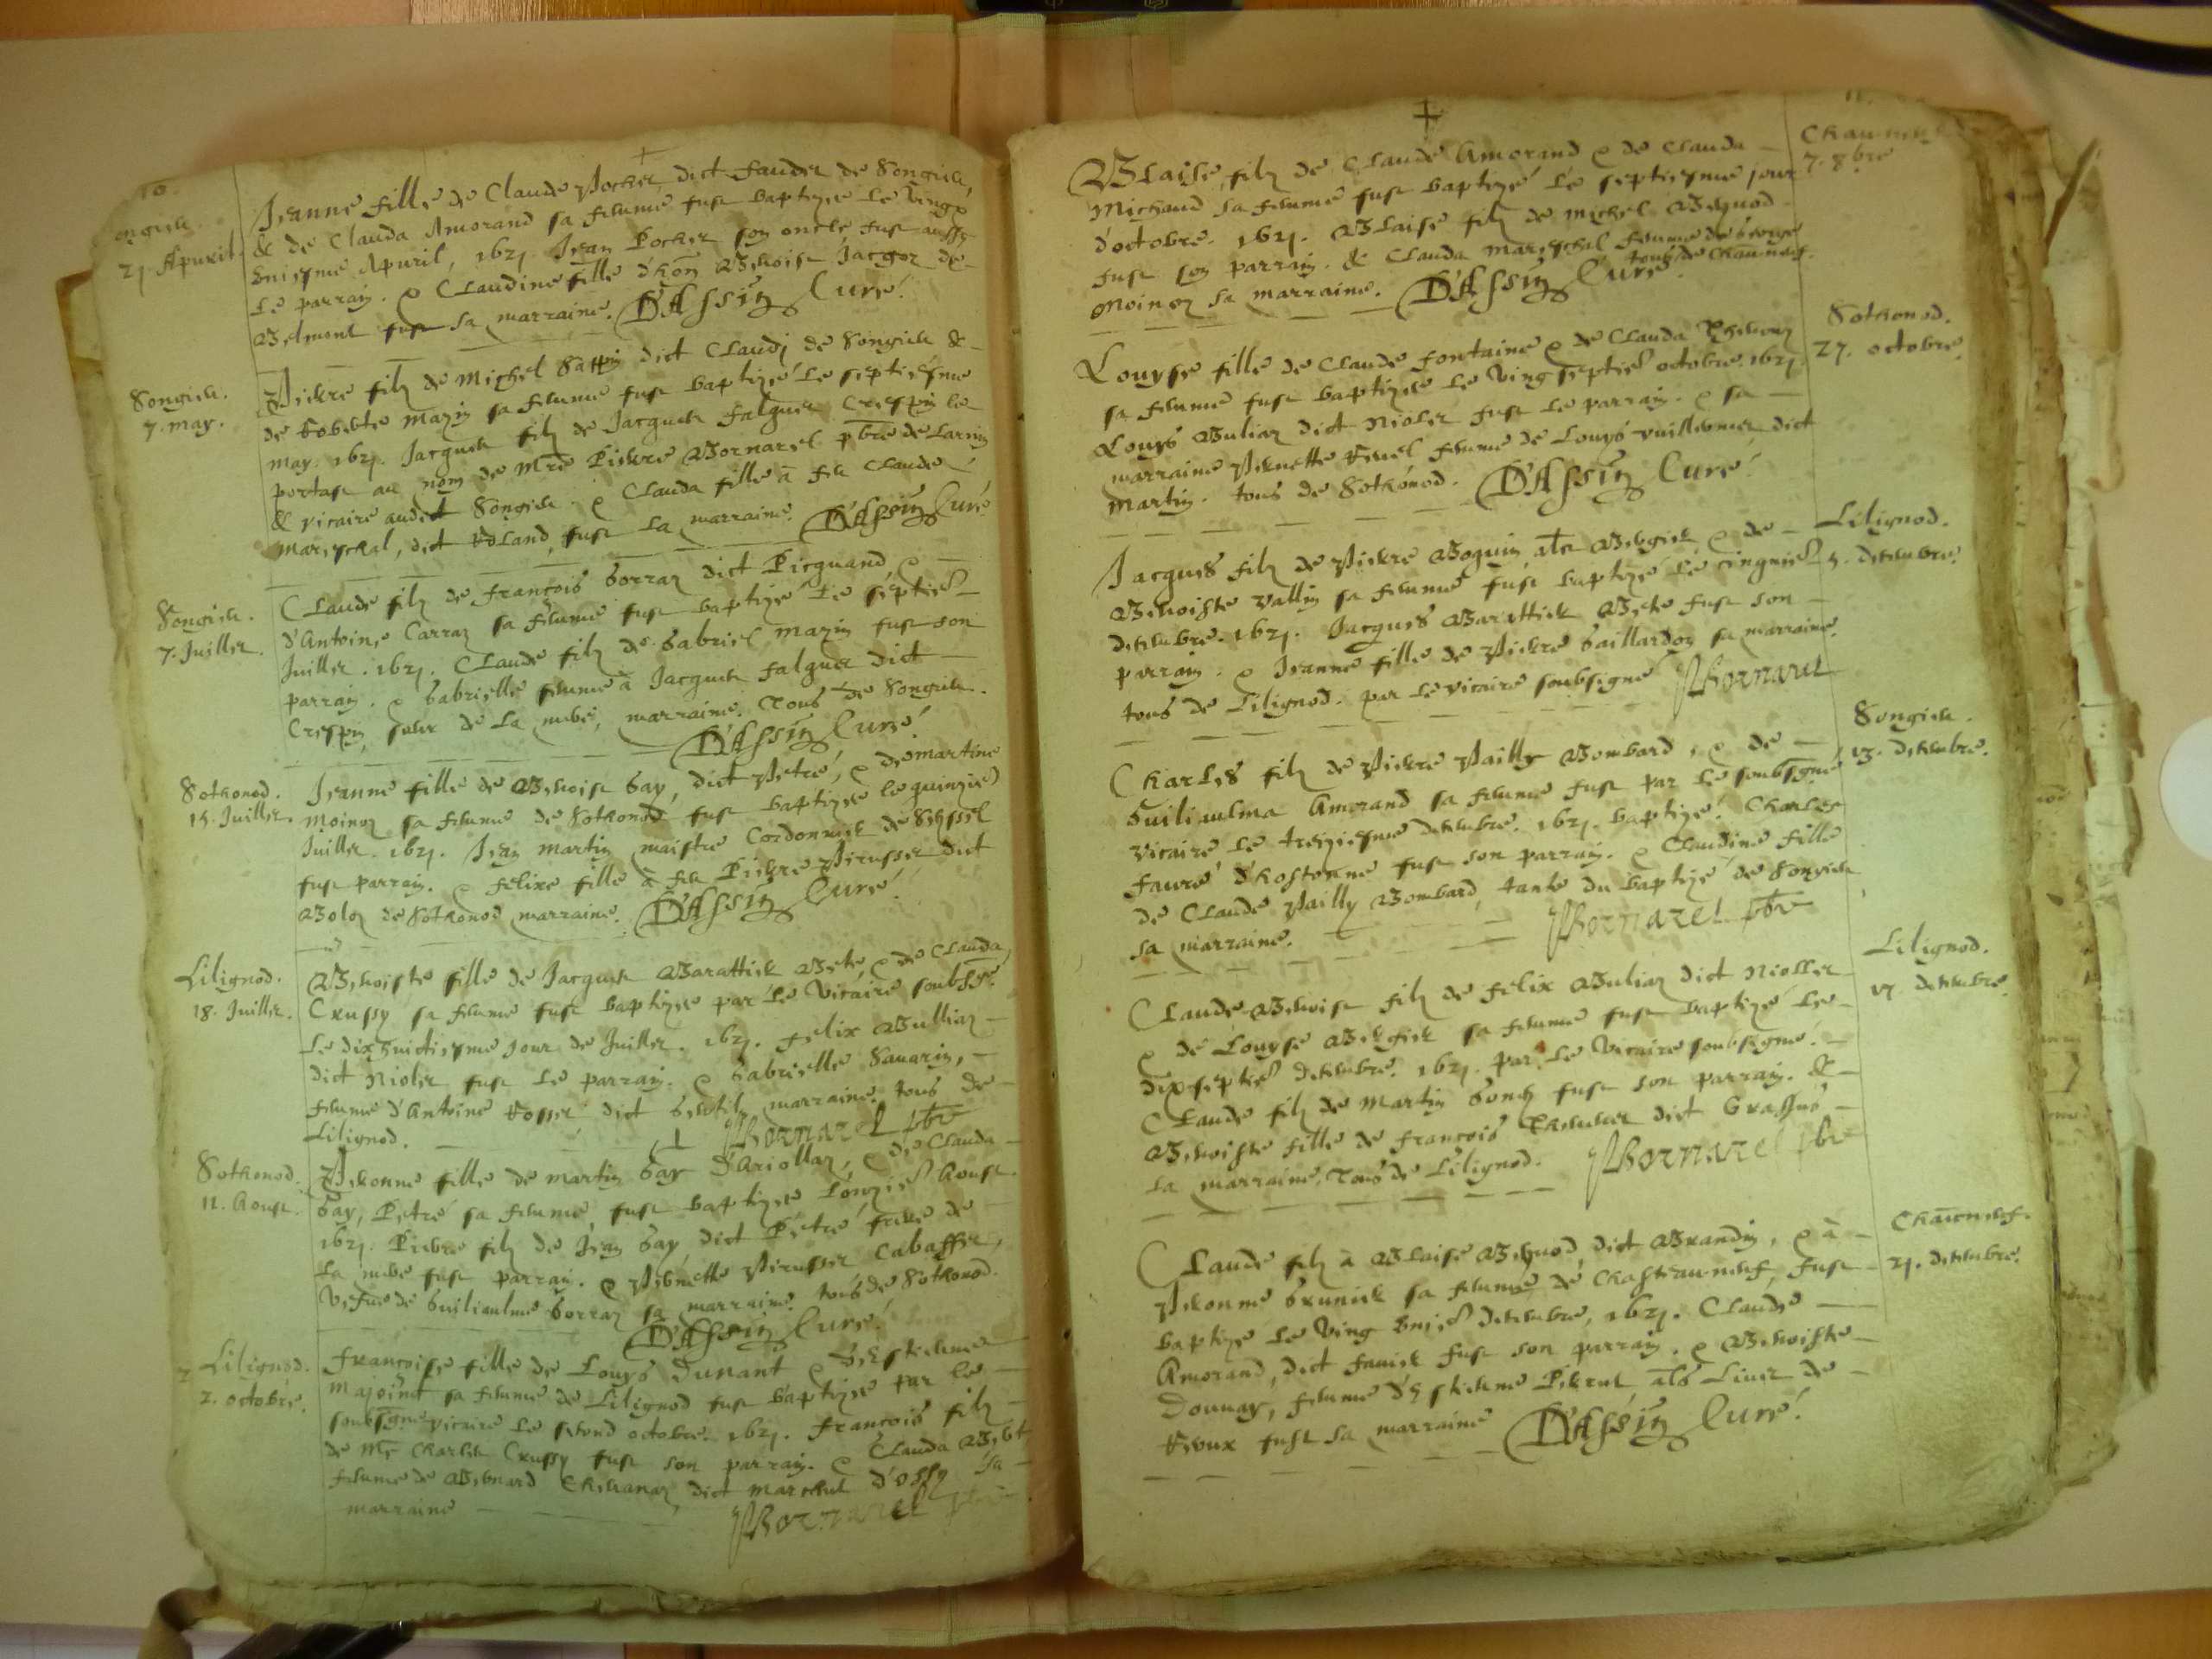 10.
ongieu.
21. Apuril.
Jeanne fille de Claude Pochet dict Faudet de Songieu,
& de Clauda Amorand sa femme fust baptizee le vingt
uniesme Apuril, 1621. Jean Pochet son oncle fust aussy
le parrain. & Claudine fille d'hon. Benoist Jacqoz de
Belmont fust sa marraine. D'Assin Curé.
Songieu.
7. may.
Pierre filz de Michel Sappin dict Claudy de Songieu &
de Toberte Mazin sa femme fust baptizé le septiesme
may. 1621. Jacques filz de Jacques Falquet Crespin le
portast au nom de Mre Pierre Bornarel pbre de
& vicaire audict Songieu. & Clauda fille à feu Claude
Mareschal, dict Roland, fust la marraine. D'Assin Curé
Songieu.
7. Juillet.
Claude filz de François Gorraz dict Picquand, &
d'Antoine Carraz sa femme fust baptizé le septie
Juillet. 1621. Claude filz de Gabriel Mazin fust son
parrain. & Gabrielle femme à Jacques Falquet dict
Crespin, soeur de la mere, marraine. Tous de Songieu.
D'Assin Curé.
Sothonod.
15. Juillet.
Jeanne fille de Benoist Gay, dict Petré, & de martine
Moinoz sa femme de Sothonod fust baptizee le quinzie
Juillet. 1621. Jean Martin maistre Cordonnier de Seyssel
fust parrain. & Felixe fille à feu Pierre Perusset dict
Boloz de Sothonod marraine. D'Assin Curé.
Lilignod.
18. Juillet.
Benoiste fille de Jacques Barattier Bete, & de Clauda
Crussy sa femme fust baptizee par le vicaire soubsgé.
le dixhuictiesme jour de Juillet. 1621. Felix Bulliaz
dict Niolet fust le parrain. & Gabrielle Sauarin,
femme d'Antoine Rosset dict Gentilz marraine. tous de
Lilignod. PBornarel pbre
Sothonod.
11. Aoust.
Peronne fille de Martin Gay d'Ariollaz, & de Clauda
Gay, Petré sa femme, fust baptizee l'onzie Aoust.
1621. Pierre filz de Jean Gay, dict Petré frere de
la mere fust parrain. & Pernette Perusset Cabasset,
vefue de Guiliaulme Gorraz sa marraine. tous de Sothonod.
D'Assin Curé.
Lilignod.
2. octobre.
Françoise fille de Louys Dunant & Estienne
Majoint sa femme de Lilignod fust baptizee par le
soubsigné vicaire le second octobre. 1621. François filz
de Me Charles Crussy fust son parrain. & Clauda
femme de Bernard Chevanaz dict Marchet sa
marraine PBornarel
11.
Chauneuf
7. 8bre
Blaise filz de Claude Amorand & de Clauda
Michaud sa femme fust baptizé le septiesme jour
d'octobre. 1621. Blaise filz de Michel Beynod
fust son parrain. & Clauda Mareschal femme de George
Moinoz sa marraine. tous de Chauneuf.
D'Assin Curé.
Sothonod.
27. octobre.
Louyse fille de Claude Fontaine & de Clauda
sa femme fust baptizee le vingseptie octobre. 1621.
Louys Buliaz dict Niolet fust le parrain. & sa
marraine Pernette Reuel femme de Louys Vuillermet dict
Martin. tous de Sothonod. D'Assin Curé.
Lilignod.
5. decembre.
Jacques filz de Pierre Boquin als Bergier & de
Benoiste Vallin sa femme fust baptizé le cinquie
decembre. 1621. Jacques Barattier Bete fust son
parrain. & Jeanne fille de Pierre Gaillardoz sa marraine.
tous de Lilignod. par le vicaire soubsigné PBornarel
Songieu.
13. decembre.
Charles filz de Pierre Pailly Bombard, & de
Guiliaulma Amorand sa femme fust par le soubsigné
vicaire le treiziesme decembre. 1621. baptizé. Charles
Faure d'hostonne fust son parrain. & Claudine fille
de Claude Pailly Bombard, tante du baptizé de Songieu
sa marraine. PBornarel pbre
Lilignod.
17. decembre.
Claude-Benoist filz de Felix Buliaz dict Niollet
& de Louyse Bergier sa femme fust baptizé le
dixseptie decembre. 1621. par le vicaire soubsigné.
Claude filz de Martin Gonet fust son parrain. &
Benoiste fille de François dict Grassus
la marraine. Tous de Lilignod. PBornarel pbre
Chauneuf.
21. decembre.
Claude filz à Blaise Beynod, dict Brandin, & à
Peronne Grunier sa femme de Chasteauneuf, fust
baptizé le ving unie decembre, 1621. Claude
Amorand, dict Fauier fust son parrain. & Benoiste
Dounay, femme d'Estienne Perrut als Liuet de
Reoux fust sa marraine D'Assin Curé.